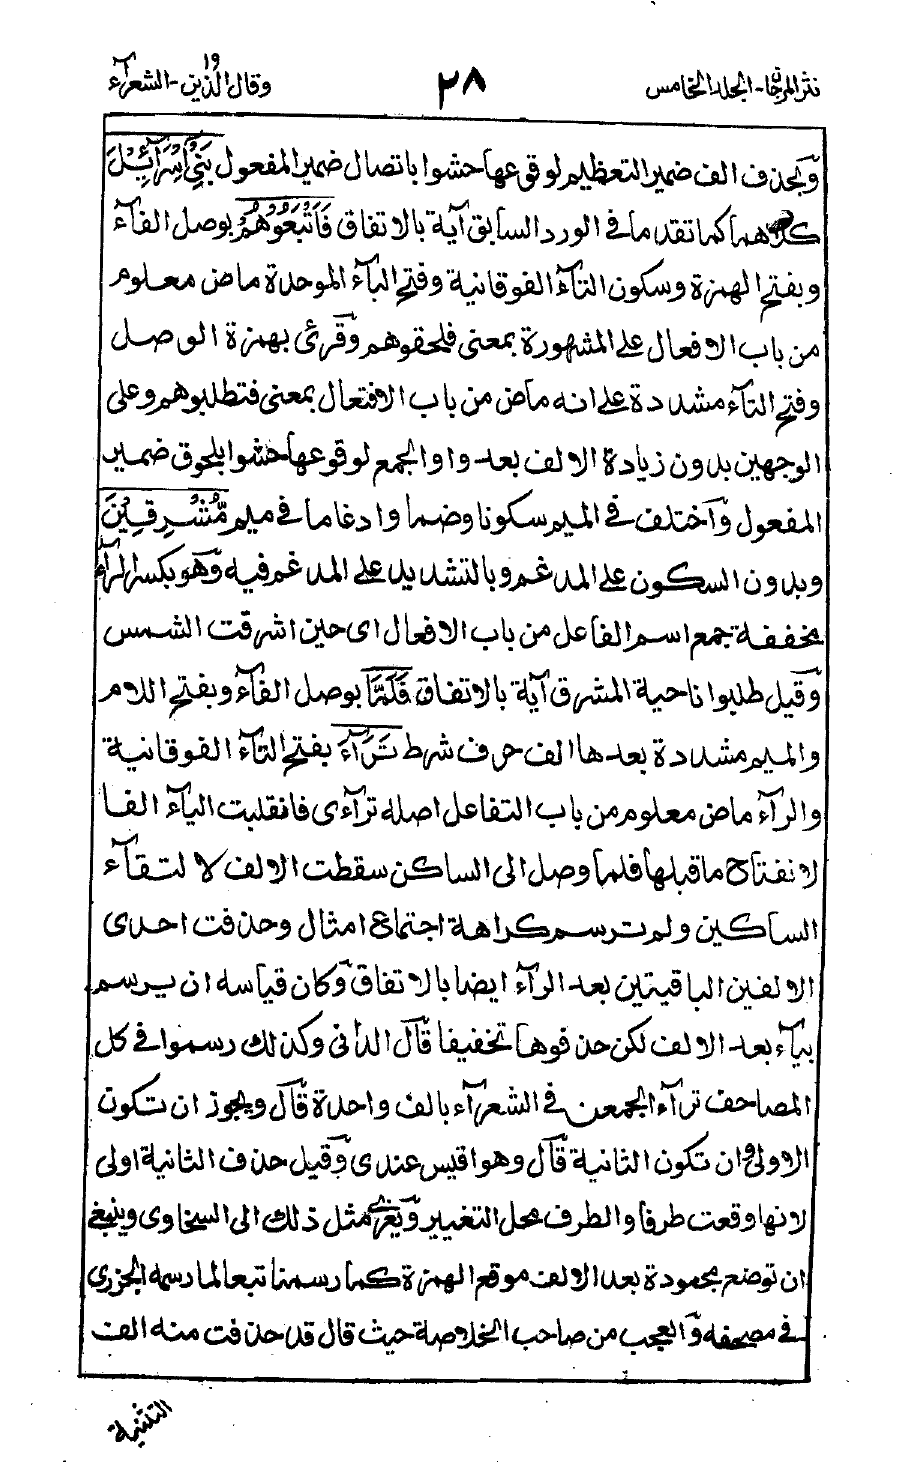 نثر المرجان - المجلد الخامس
٢٨
وقال الذين ١٩ - الشعرآء
وبحذف الف ضمير التعظيم لوقوعها حشوا باتصال ضمير المفعول بَنِيْٓ اِسْرَآئِيْلَ
كلاهما كما تقدما في الورد السابق آية بالاتفاق فَاَتْبَعُوْهُمْ بوصل الفآء
وبفتح الهمزة وسكون التآء الفوقانية وفتح البآء الموحدة ماض معلوم
من باب الافعال على المشهورة بمعنى فلحقوهم وقرئ بهمزة الوصل
وفتح التآء مشددة على انه ماض من باب الافتعال بمعنى فتطلبوهم وعلى
الوجهين بدون زيادة الالف بعد واو الجمع لوقوعها حشوا بلحوق ضمير
المفعول وآختلف في الميم سكونا وضما وادغاما في ميم مُّشْرِقِيْنَ
وبدون السكون على المدغم وبالتشديد على المدغم فيه وهو بكسر الرآء
مخففة جمع اسم الفاعل من باب الافعال اى حين اشرقت الشمس
وقيل طلبوا ناحية المشرق آية بالاتفاق فَلَمَّا بوصل الفآء وبفتح اللام
والميم مشددة بعدها الف حرف شرط تَرَآءَ بفتح التآء الفوقانية
والرآء ماض معلوم من باب التفاعل اصله ترآءى فانقلبت اليآء الفا
لانفتاح ما قبلها فلما وصل الى الساكن سقطت الالف لالتقآء
الساكنين ولم ترسم كراهة اجتماع امثال وحذفت احدى
الالفين الباقيتين بعد الرآء ايضا بالاتفاق وكان قياسه ان يرسم
بيآء بعد الالف لكن حذفوها تخفيفا قآل الدانى وكذلك رسموا في كل
المصاحف ترآء الجمعن في الشعرآء بالف واحدة قآل ويجوز ان تكون
الاولى وان تكون الثانية قآل وهو اقيس عندى وقيل حذف الثانية اولى
لانها وقعت طرفا والطرف محل التغيير ويعزى مثل ذلك الى السخاوى وينبغى
ان توضع مجعودة بعد الالف موقع الهمزة كما رسمنا تبعا لما رسمه الجزرى
في مصحفه والعجب من صاحب الخلاصة حيث قال قد حذفت منه الف
التثنية